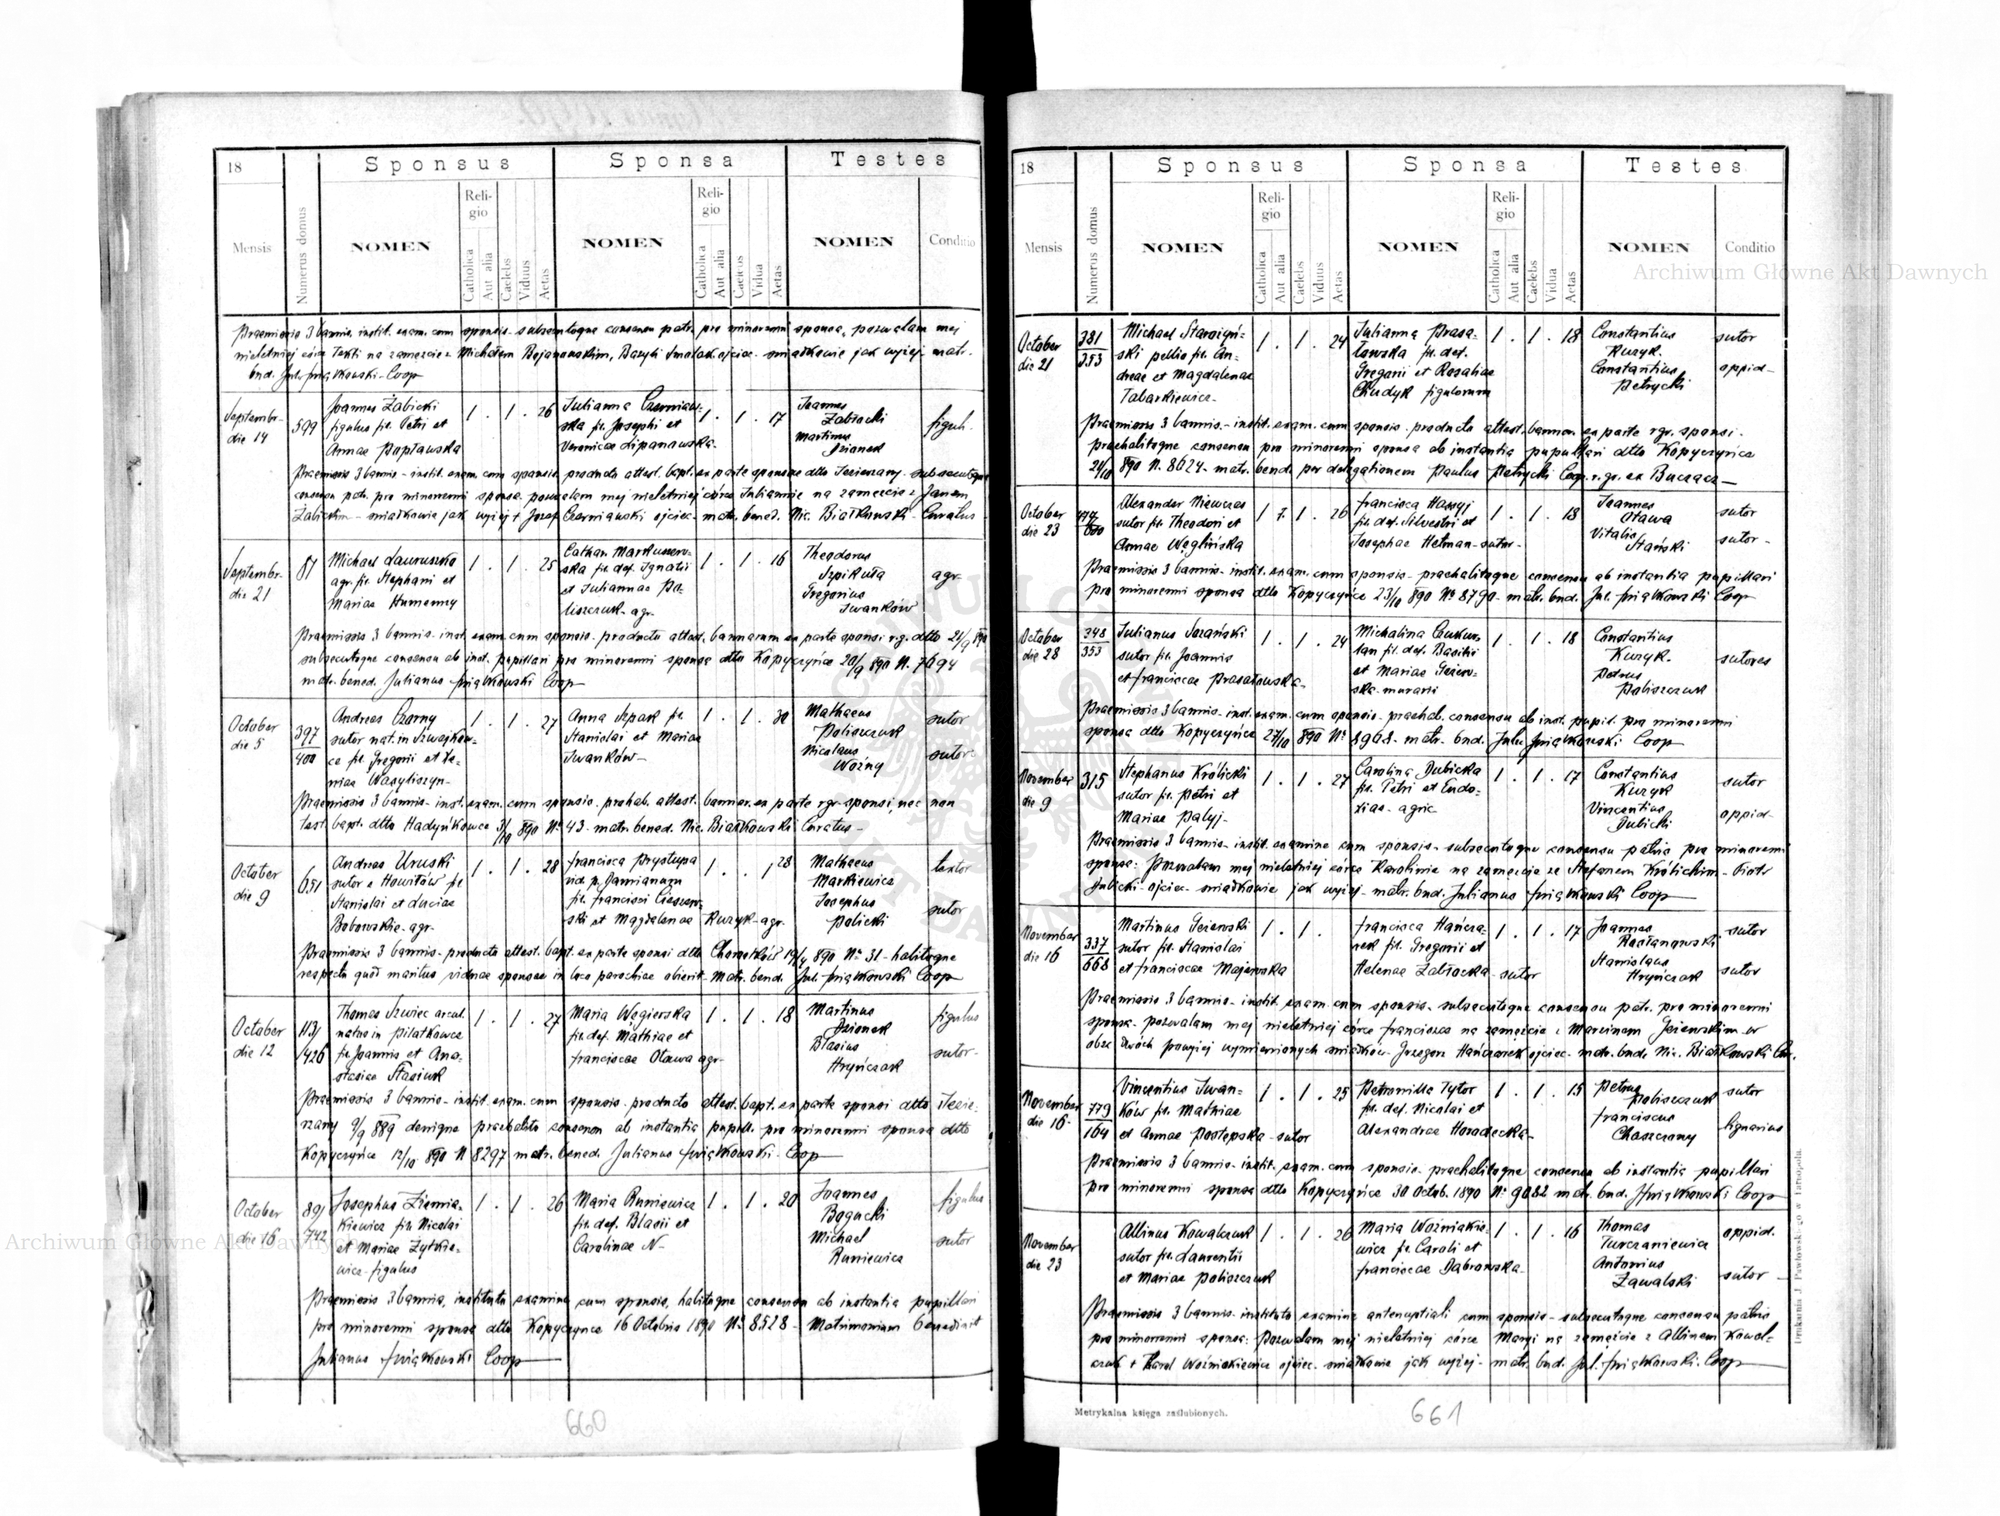 18
Sponsus
Sponsa
Testes
Mensis
Numerus domus
NOMEN
Religio
Catholica
Aut alia
Caelebs
Viduus
Aetas
NOMEN
Religio
Catholica
Aut alia
Caelebs
Vidua
Aetas
NOMEN
Conditio
Praemissis 3 bannis, instit. exam. cum sponsis - subsecutoque consensu patr. pro minorenni sponsa, pozwalam mej
nieletniej córce Tekli na zamęzcie z Michałem Bojanowskim, Bazyli Smolak ojciec - świadkowie jak wyżej - matr.
bnd. Jul. Świątkowski - Coop
Septembr. die 14
599
Joannes Żabicki
figulus fil. Petri et
Annae Popławska
1 . 1 . 26
Julianna Czerniaw-
ska fil. Josephi et
Veronicae Lipanowska
1 . 1 . 17
Joannes
Zabłocki
Martinus
Dzionek
figuli
Praemissis 3 bannis - instit. exam. cum sponsis, producto attest. bapt. ex parte sponsae dtto Jezierzany - subsecutoque
consensu patr. pro minorenni sponsa. pozwalam mej nieletniej córce Juliannie na zamęzcie z Janem
Żabickim - świadkowie jak wyżej + Józef Czerniawski ojciec - matr. bened. Nic. Białkowski - Curatus -
Septembr. die 21
81
Michael Lauruszko
agr. fil. Stephani et
Mariae Humenny
1 . 1 . 25
Cathar. Markuszew-
ska fil. def. Ignatii
et Juliannae Po-
liszczuk - agr.
1 . 1 . 16
Theodorus
Szpikuła
Gregorius
Iwanków
agr.
Praemissis 3 bannis - inst. exam. cum sponsis. producto attest. bannorum ex parte sponsi r.g. dtto 21/9 890
subsecutoque consensu ab inst. pupillari pro minorenni sponsa dtto Kopyczyńce 20/9 890 N. 7694
matr. bened. Julianus Świątkowski Coop
October die 5
397
400
Andreas Czorny
sutor nat. in Szwajkow-
ce fil. Gregorii et Xe-
niae Wasyliszyn -
1 . 1 . 27
Anna Szpak fil.
Stanislai et Mariae
Iwanków -
1 . 1 . 30
Mathaeus
Poliszczuk
Nicolaus
Woźny
sutor
sutor
Praemissis 3 bannis - inst. exam. cum sponsis. prohab. attest. bannor. ex parte rgr. sponsi, nec non
test. bapt. dtto Hadyńkowce 3/10 890 N. 43 - matr. bened. Nic. Białkowski Curatus -
October die 9
651
Andreas Uruski
sutor e Howiłów fil.
Stanislai et Luciae
Bobowskie - agr.
1 . 1 . 28
Francisca Prystupa
vid. p. Damianum
fil. Francisci Cieszew-
ski et Magdalenae Kuzyk - agr.
1 . 1 28
Mathaeus
Markiewicz
Josephus
Policki
textor
sutor
Praemissis 3 bannis - producto attest. bapt. ex parte sponsi dtto Chorostków 19/4 890 N. 31 - habitoque
respectu quod maritus viduae sponsae in loco parochiae obierit - Matr. bend. Jul. Świątkowski Coop
October die 12
113/
426
Thomas Szwiec arcul.
natus in Piłatkowce
fil. Joannis et Ana-
stasiae Stasiuk
1 . 1 . 27
Maria Węgierska
fil. def. Mathiae et
Franciscae Oława agr.
1 . 1 . 18
Martinus
Dzionek
Blasius
Hryńczak
figulus
sutor -
Praemissis 3 bannis - instit. exam. cum sponsis. producto attest. bapt. ex parte sponsi dtto Jezie-
rzany 9/9 889 denique praehabito consensu ab instantia pupill. pro minorenni sponsa dtto
Kopyczyńce 12/10 890 N 8297 matr. bened. Julianus Świątkowski - Coop
October die 16
89/
742
Josephus Ziemia-
kiewicz fil. Nicolai
et Mariae Żytkie-
wicz - figulus
1 . 1 . 26
Maria Runiewicz
fil. def. Blasii et
Carolinae N -
1 . 1 . 20
Joannes
Bogucki
Michael
Runiewicz
figulus
sutor
Praemissis 3 bannis, instituto examine cum sponsis, habitoque consensu ab instantia pupillari
pro minorenni sponsa dtto Kopyczyńce 16 Octobris 1890 N. 8528 - Matrimonium benedixit
Julianus Świątkowski Coop
660
18
Sponsus
Sponsa
Testes
Mensis
Numerus domus
NOMEN
Religio
Catholica
Aut alia
Caelebs
Viduus
Aetas
NOMEN
Religio
Catholica
Aut alia
Caelebs
Vidua
Aetas
NOMEN
Conditio
October die 21
381
353
Michael Starozyń-
ski pellio fil. An-
dreae et Magdalenae
Tabarkiewicz -
1 . 1 . 24
Julianna Prasa-
łowska fil. def.
Gregorii et Rosaliae
Chudyk figulorum
1 . 1 . 18
Constantius
Kuzyk.
Constantius
Petrycki
sutor
oppid -
Praemissis 3 bannis - instit. exam. cum sponsis. producto attest. bannor. ex parte rgr. sponsi.
praehabitoque consensu pro minorenni sponsa ab instantia pupillari dtto Kopyczyńce
21/10 890 N. 8624 - matr. bend. per delegationem Paulus Petrycki Coop. r. gr. ex Buczacz -
October die 23
477
600
Alexander Niewczas
sutor fil. Theodori et
Annae Węglińska
1 . 1 . 26
Francisca Hawryj
fil. def. Silvestri et
Josephae Hetman - sutor -
1 . 1 . 18
Joannes
Oława
Vitalis
Stański
sutor
sutor -
Praemissis 3 bannis - instit. exam. cum sponsis - praehabitoque consensu ab instantia pupillari
pro minorenni sponsa dtto Kopyczyńce 23/10 890 No 8790 - matr. bnd. Jul. Świątkowski Coop
October die 28
348
353
Julianus Sozański
sutor fil. Joannis
et Franciscae Prasałowska -
1 . 1 . 24
Michalina Cukur-
lan fil. def. Basilii
et Mariae Gsiew-
ska - murarii
1 . 1 . 18
Constantius
Kuzyk.
Petrus
Poliszczuk
sutores
Praemissis 3 bannis - inst. exam. cum sponsis - praehab. consensu ab inst. pupil. pro minorenni
sponsa dtto Kopyczyńce 27/10 890 No 8968 - matr. bnd. Jul. Świątkowski Coop
November die 9
315
Stephanus Królicki
sutor fil. Petri et
Mariae Palyj -
1 . 1 . 27
Carolina Dubicka
fil. Petri et Eudo-
xiae - agric.
1 . 1 . 17
Constantius
Kuzyk
Vincentius
Dubicki
sutor
oppid -
Praemissis 3 bannis - instit. examine cum sponsis - subsecutoque consensu patris pro minorenni
sponsa: Pozwalam mej nieletniej córce Karolinie na zamęzcie ze Stefanem Królickim - Piotr
Dubicki - ojciec - świadkowie jak wyżej - matr. bnd. Julianus Świątkowski Coop
November die 16
337
668
Martinus Gsiewski
sutor fil. Stanislai
et Franciscae Majewska
1 . 1 .
Francisca Hańcza-
rek fil. Gregorii et
Helenae Zabłocka - sutor
1 . 1 . 17
Joannes
Rozłanowski
Stanislaus
Hryńczak
sutor
sutor
Praemissis 3 bannis - instit. exam. cum sponsis - subsecutoque consensu patr. pro minorenni
sponsa - pozwalam mej nieletniej córce Franciszce na zamęzcie z Marcinem Gsiewskim - w
obec dwóch powyżej wymienionych świadków - Grzegorz Hańczarek ojciec - matr. bnd. Nic. Białkowski Cur.
November die 16 -
779
164
Vincentius Iwan-
ków fil. Mathiae
et Annae Postępska - sutor
1 . 1 . 25
Petronilla Tytor
fil. def. Nicolai et
Alexandrae Horodecka -
1 . 1 . 15
Petrus
Poliszczuk
Franciscus
Chaszczowy
sutor
lignarius
Praemissis 3 bannis - instit. exam. cum sponsis - praehabitoque consensu ab instantia pupillari
pro minorenni sponsa dtto Kopyczyńce 30 Octob. 1890 No 9082 matr. bnd. J. Świątkowski Coop
November die 23
Albinus Kowalczuk
sutor fil. Laurentii
et Mariae Poliszczuk
1 . 1 . 26
Maria Woźniakie-
wicz fil. Caroli et
Franciscae Dąbrowska -
1 . 1 . 16
Thomas
Turczaniewicz
Antonius
Zawalski
oppid.
sutor -
Praemissis 3 bannis - instituto examine antenuptiali cum sponsis - subsecutoque consensu patris
pro minorenni sponsa: Pozwalam mej nieletniej córce Maryi na zamęzcie z Albinem Kowal-
czuk + Karol Woźniakiewicz ojciec - świadkowie jak wyżej - matr. bnd. Jul. Świątkowski. Coop
Metrykalna księga zaślubionych.
Drukarnia J. Pawłowskiego w Tarnopolu.
661
Archiwum Główne Akt Dawnych
Archiwum Główne Akt Dawnych